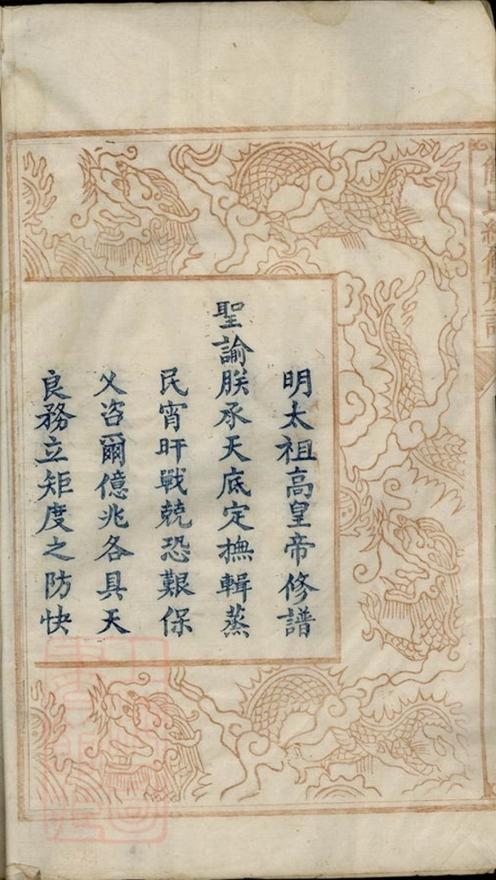 明太祖高皇帝修譜
聖諭朕承天底定撫輯蒸
民宵旰戰兢恐艱保
乂咨爾億兆各具天
良務立矩度之防快